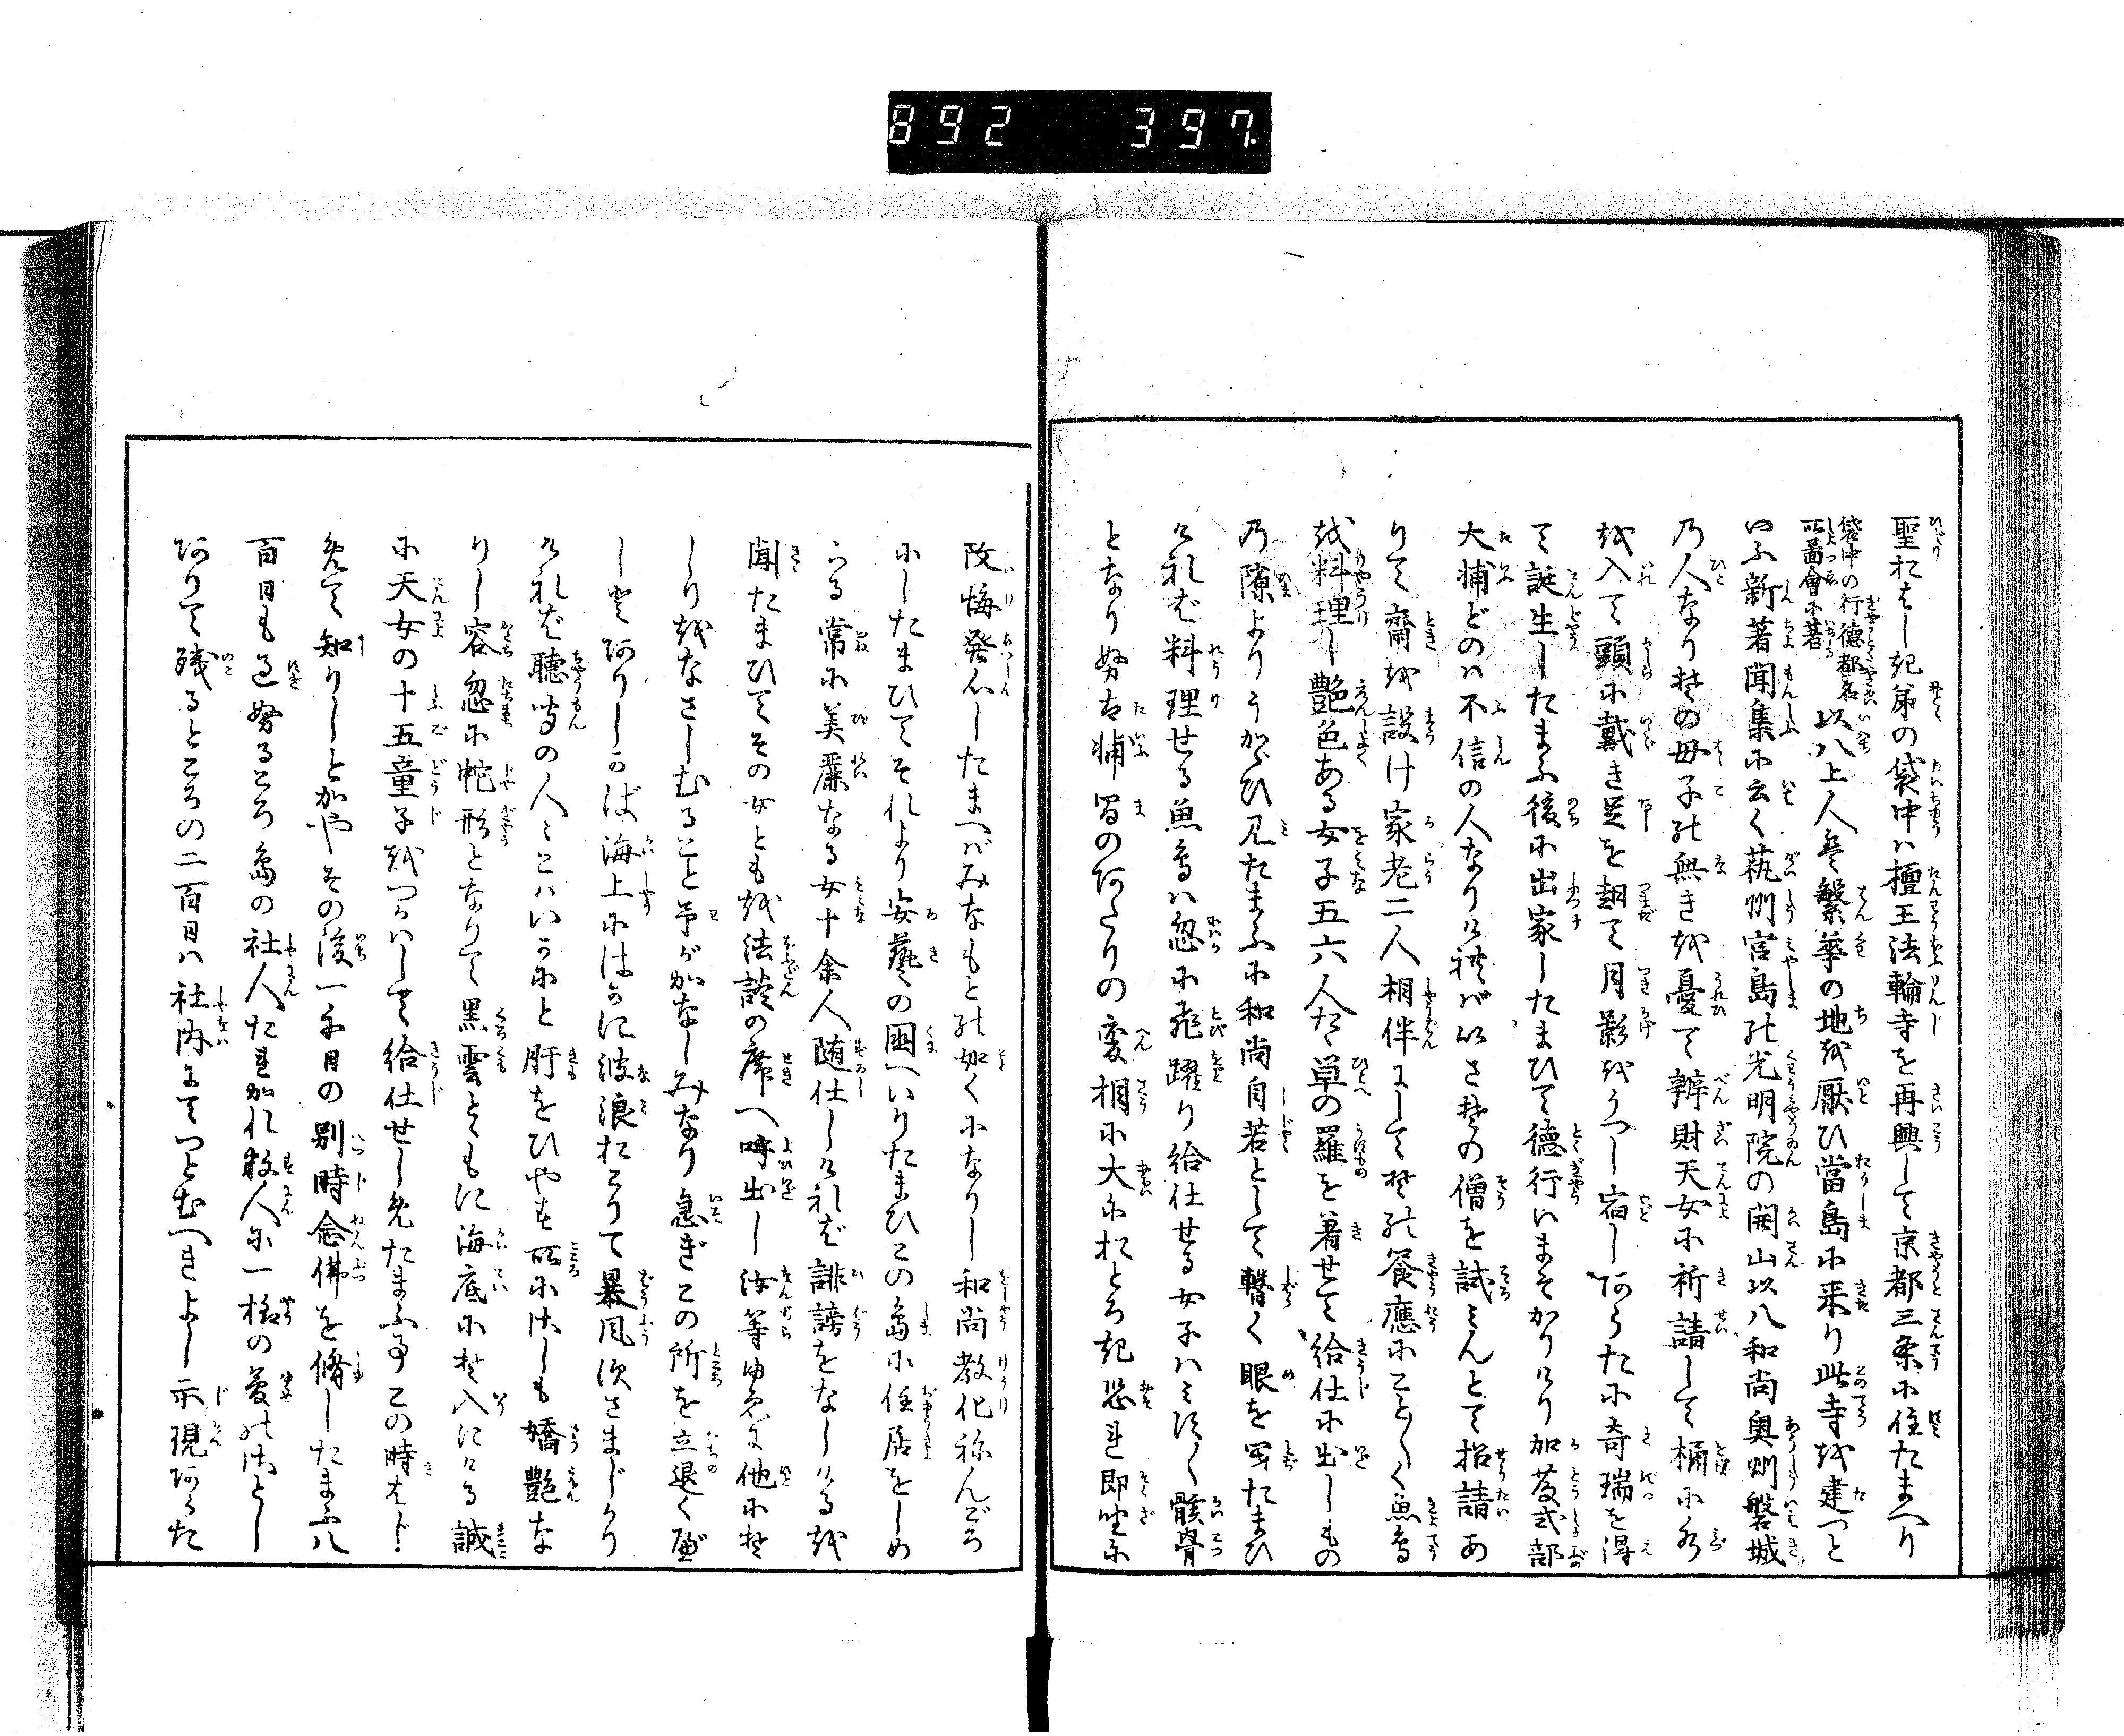 892 397.
聖おはしき弟の袋中ハ檀王法輪寺を再興して京都三条に住たまへり
袋中の行徳都名
所圖會に著 以八上人は繁華の地を厭ひ當島に来り此寺を建つと
いふ新著聞集に云く藝州宮島の光明院の開山以八和尚奥州磐城
の人なりその母子の無きを憂て辨財天女に祈請して桶に水
を入て頭に戴き足を翹て月影をうつし宿しあらたに奇瑞を得
て誕生したまふ後に出家したまひて徳行いまそかりけり加藤式部
大輔どのハ不信の人なりければいさその僧を試みんとて招請あ
りて齋を設け家老二人相伴にてその饗應にこと〲く魚鳥
を料理し艶色ある女子五六人に単の羅を着せて給仕に出しもの
の隙よりうかゞひ見たまふに和尚自若として瞥く眼を閉たまひ
ければ料理せる魚鳥ハ忽に飛躍り給仕せる女子ハミな〱骸骨
となり努大輔留のあたりの変相に大におとろき恐れ即坐に
改悔発心したまへばみなもとの如くになりし和尚教化ねんごろ
にしたまひてそれより安藝の国へいりたまひこの島に住居をしめ
らる常に美麗なる女十余人随仕しければ誹謗をなしけるを
聞たまひてその女ともを法談の席へ呼出し汝等ゆゑに他にそ
しりをなさしむること予がかなしみなり急ぎこの所を立退く べ
しとありしかば海上にはかに波浪おこりて暴風すさまじかり
ければ聴衆の人〻こハいかにと肝をひやす所にさしも嬌艶な
りし容忽に蛇形となりて黒雲とともに海底にそ入にける誠
に天女の十五童子をつかハして給仕せしめたまふ事この時はじ
めて知りしとかやその後一千日の別時念佛を脩したまふ八
百日も過ぬるころ島の社人たれかれ数人に一様の夢のさとし
ありて残るところの二百日ハ社内にてつとむへきよし示現あらた